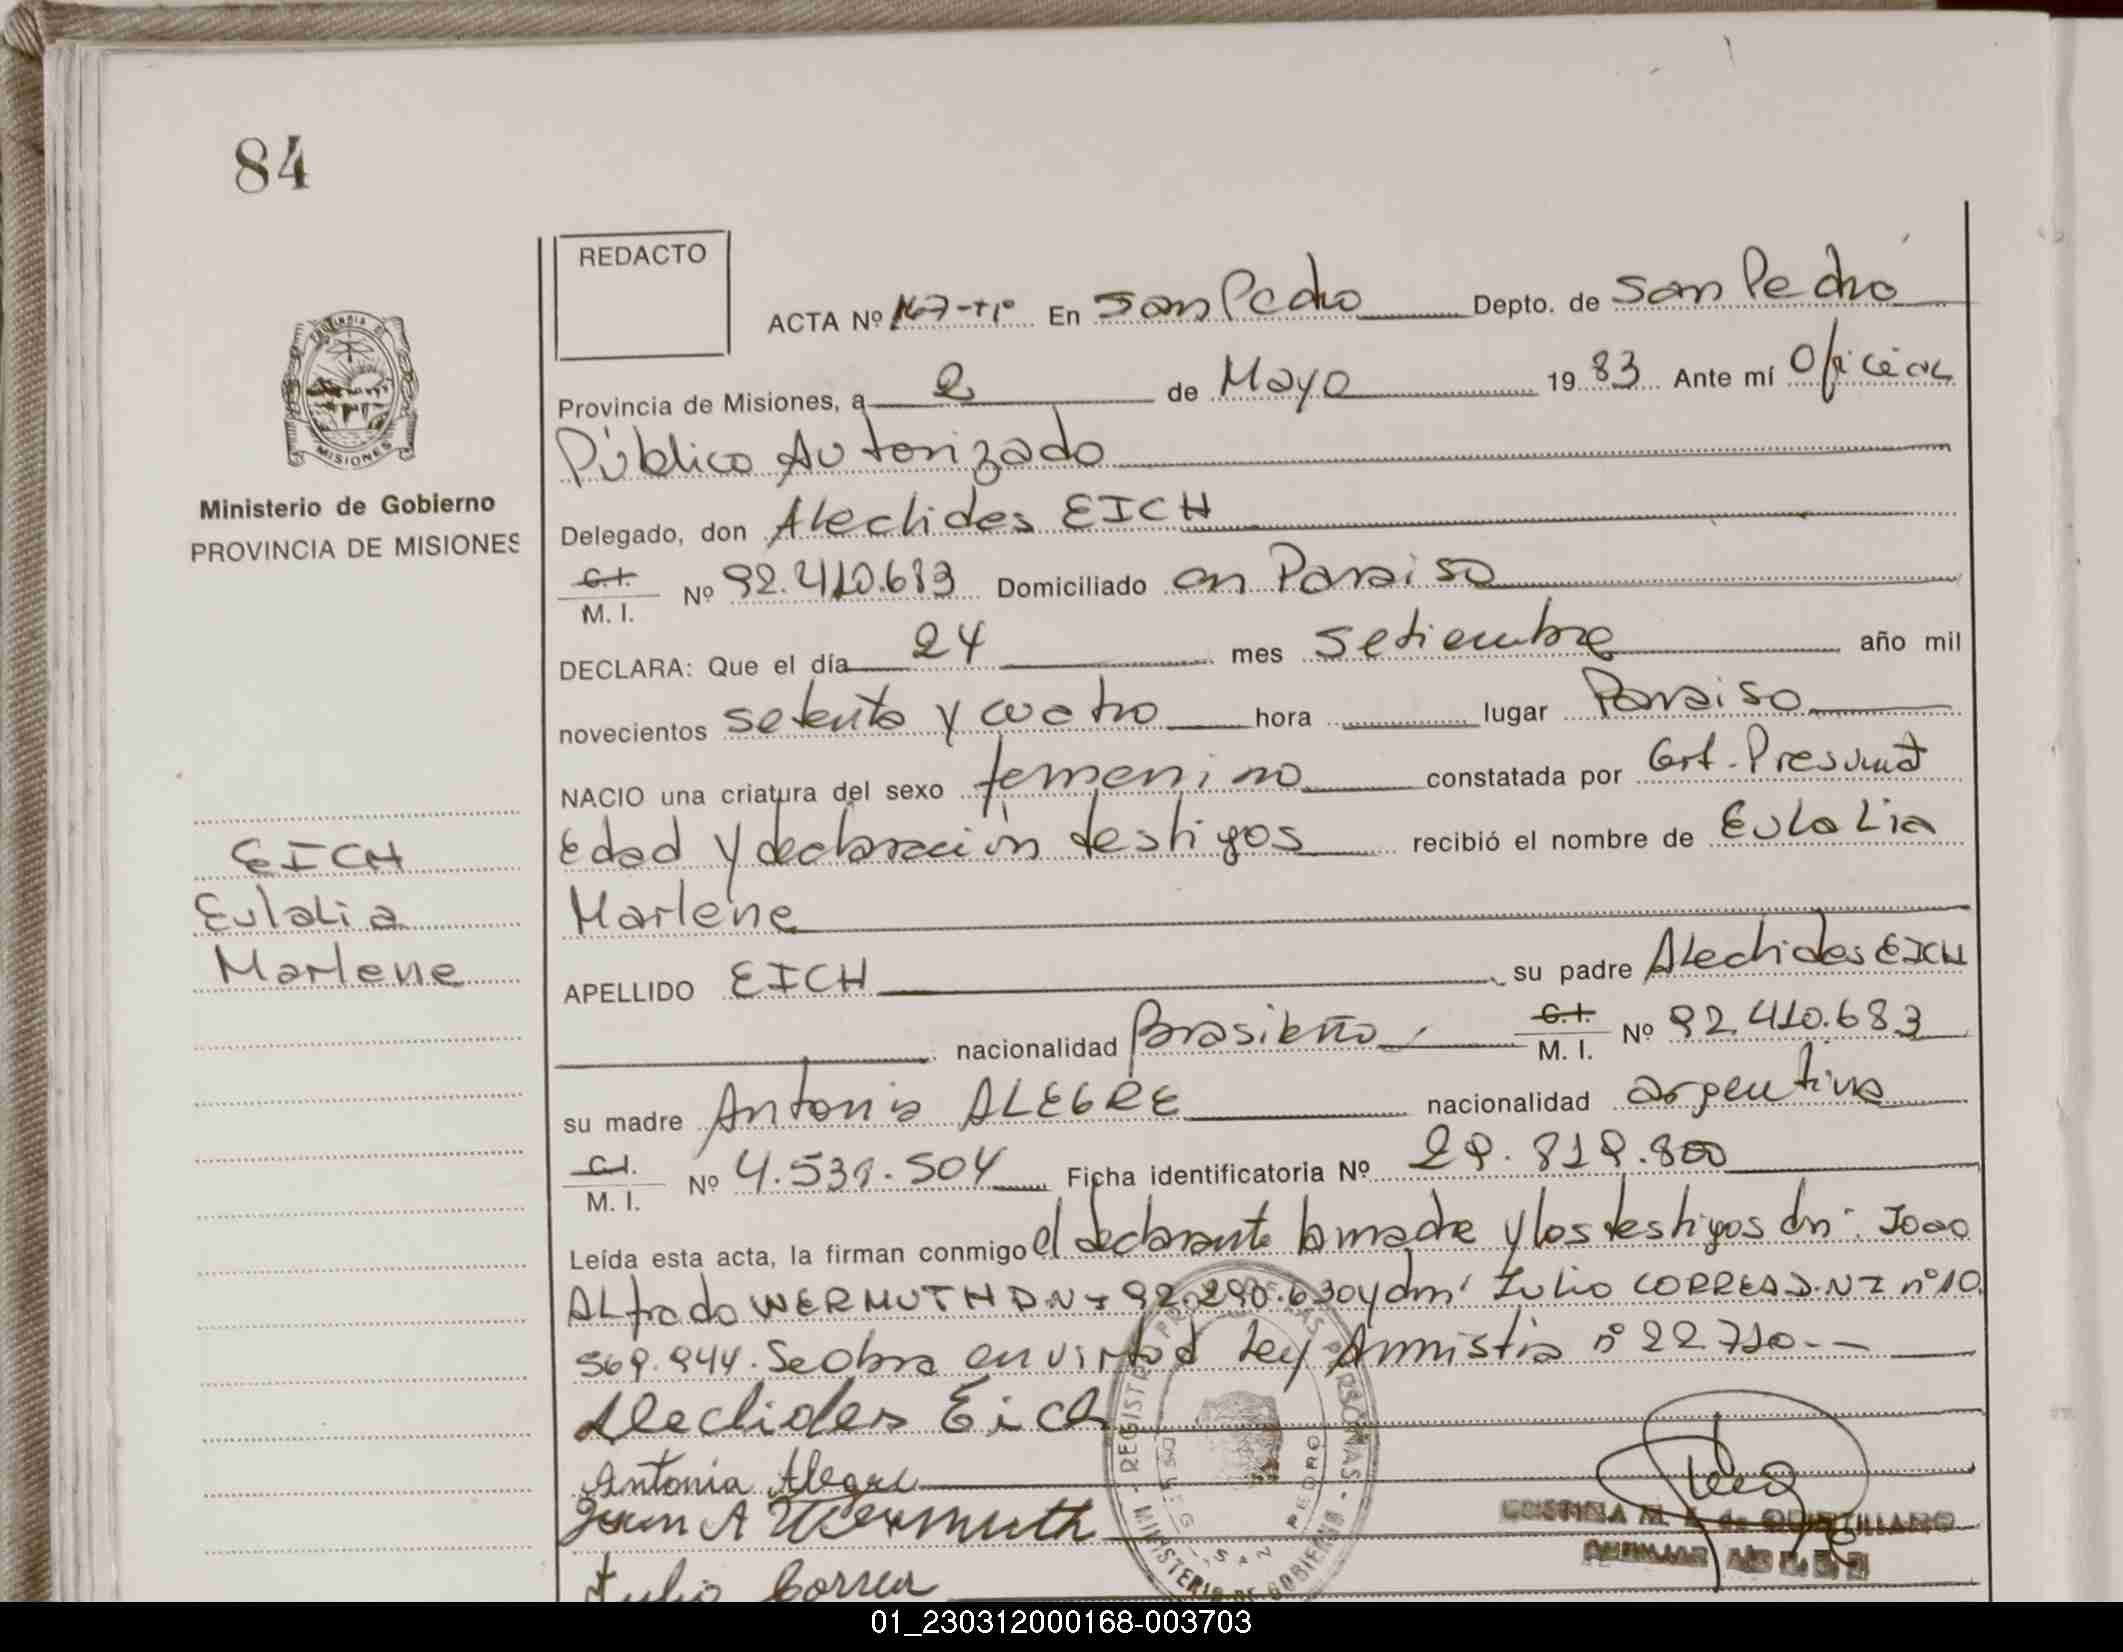 84
REDACTO
ACTA Nº 167-Tº En San Pedro Depto. de San Pedro
Provincia de Misiones, a 2 de Mayo 1983 Ante mí Oficial
Público Autorizado
Delegado, don Alechides EICH
C.I. M. I. Nº 92.410.683 Domiciliado en Paraiso
DECLARA: Que el día 24 mes Setiembre año mil
novecientos setenta y cuatro hora lugar Paraiso
NACIO una criatura del sexo femenino constatada por Crt. Presunt
Edad y declaración testigos recibió el nombre de Eulalia
Marlene
APELLIDO EICH su padre Alechides EICH
nacionalidad Brasileño C.I. M. I. Nº 92.410.683
su madre Antonia ALEGRE nacionalidad argentina
C.I. M. I. Nº 4.531.504 Ficha identificatoria Nº 29.819.800
Leída esta acta, la firman conmigo el declarante la madre y los testigos dn: Joao
Alfredo WERMUTH DNI 92.290.630 y dn: Julio CORREA D.N.I nº 10.
569.944. Se obra en virtud Ley Amnistia nº 22.710.--
Alechides Eich
Antonia Alegre
Juan A Wermuth
Julio Correa
PROVINCIA DE
MISIONES
Ministerio de Gobierno
PROVINCIA DE MISIONES
EICH
Eulalia
Marlene
REGISTRO PROV. DE LAS PERSONAS - MINISTERIO DE GOBIERNO
SAN PEDRO
01_230312000168-003703